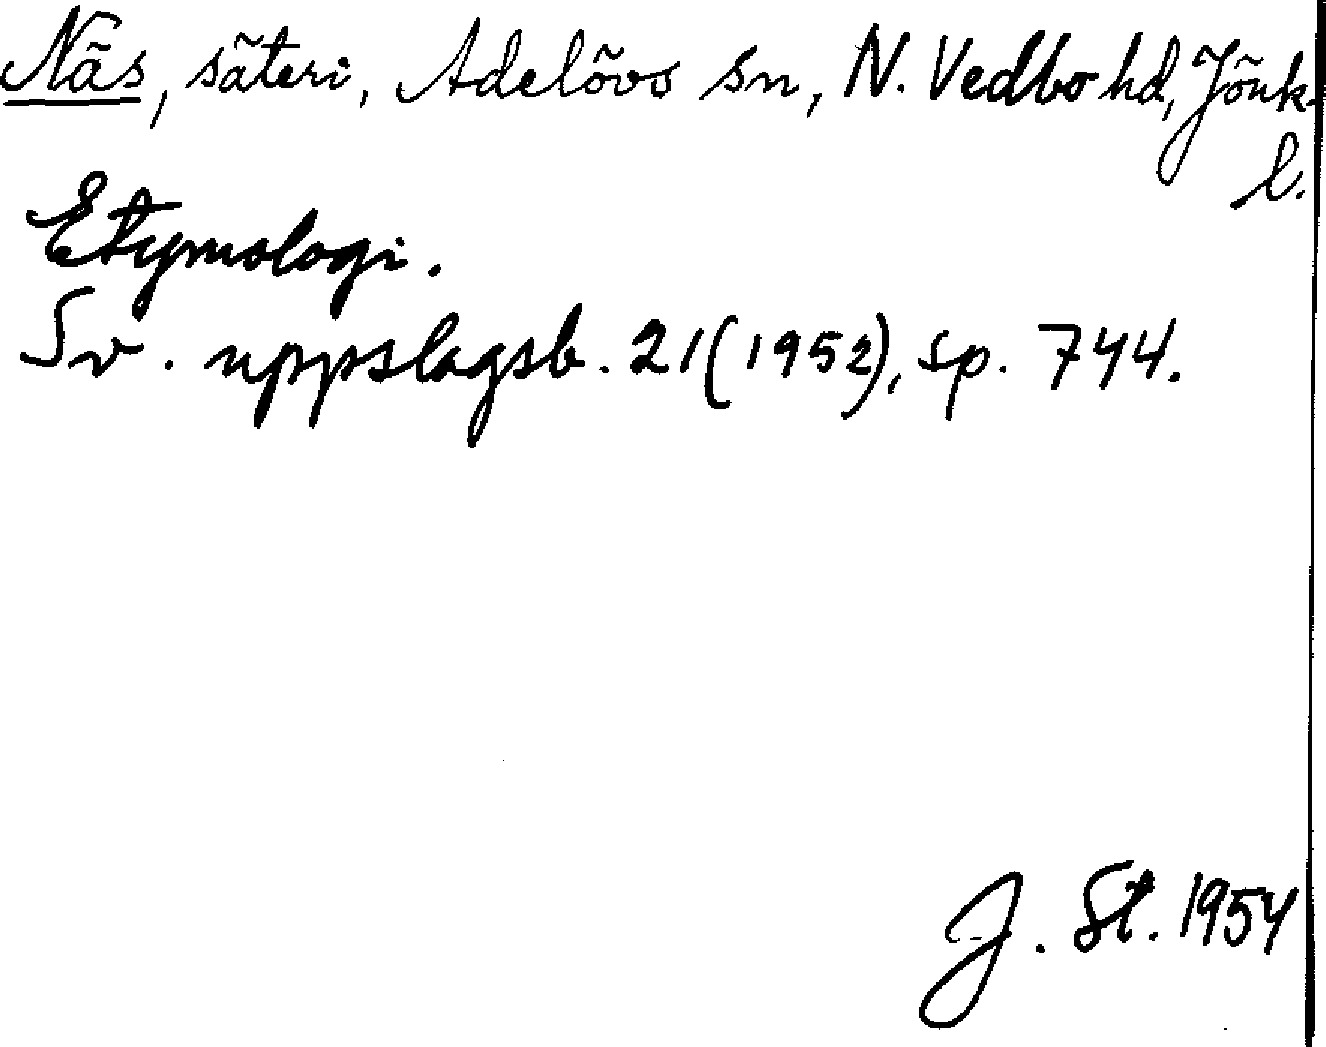 Näs, säteri, Adelövs sn, N. Vedbo hd, Jönk.
l.
Etymologi.
Sv. uppslagsb. 21 (1952), sp. 744.
J. St. 1954